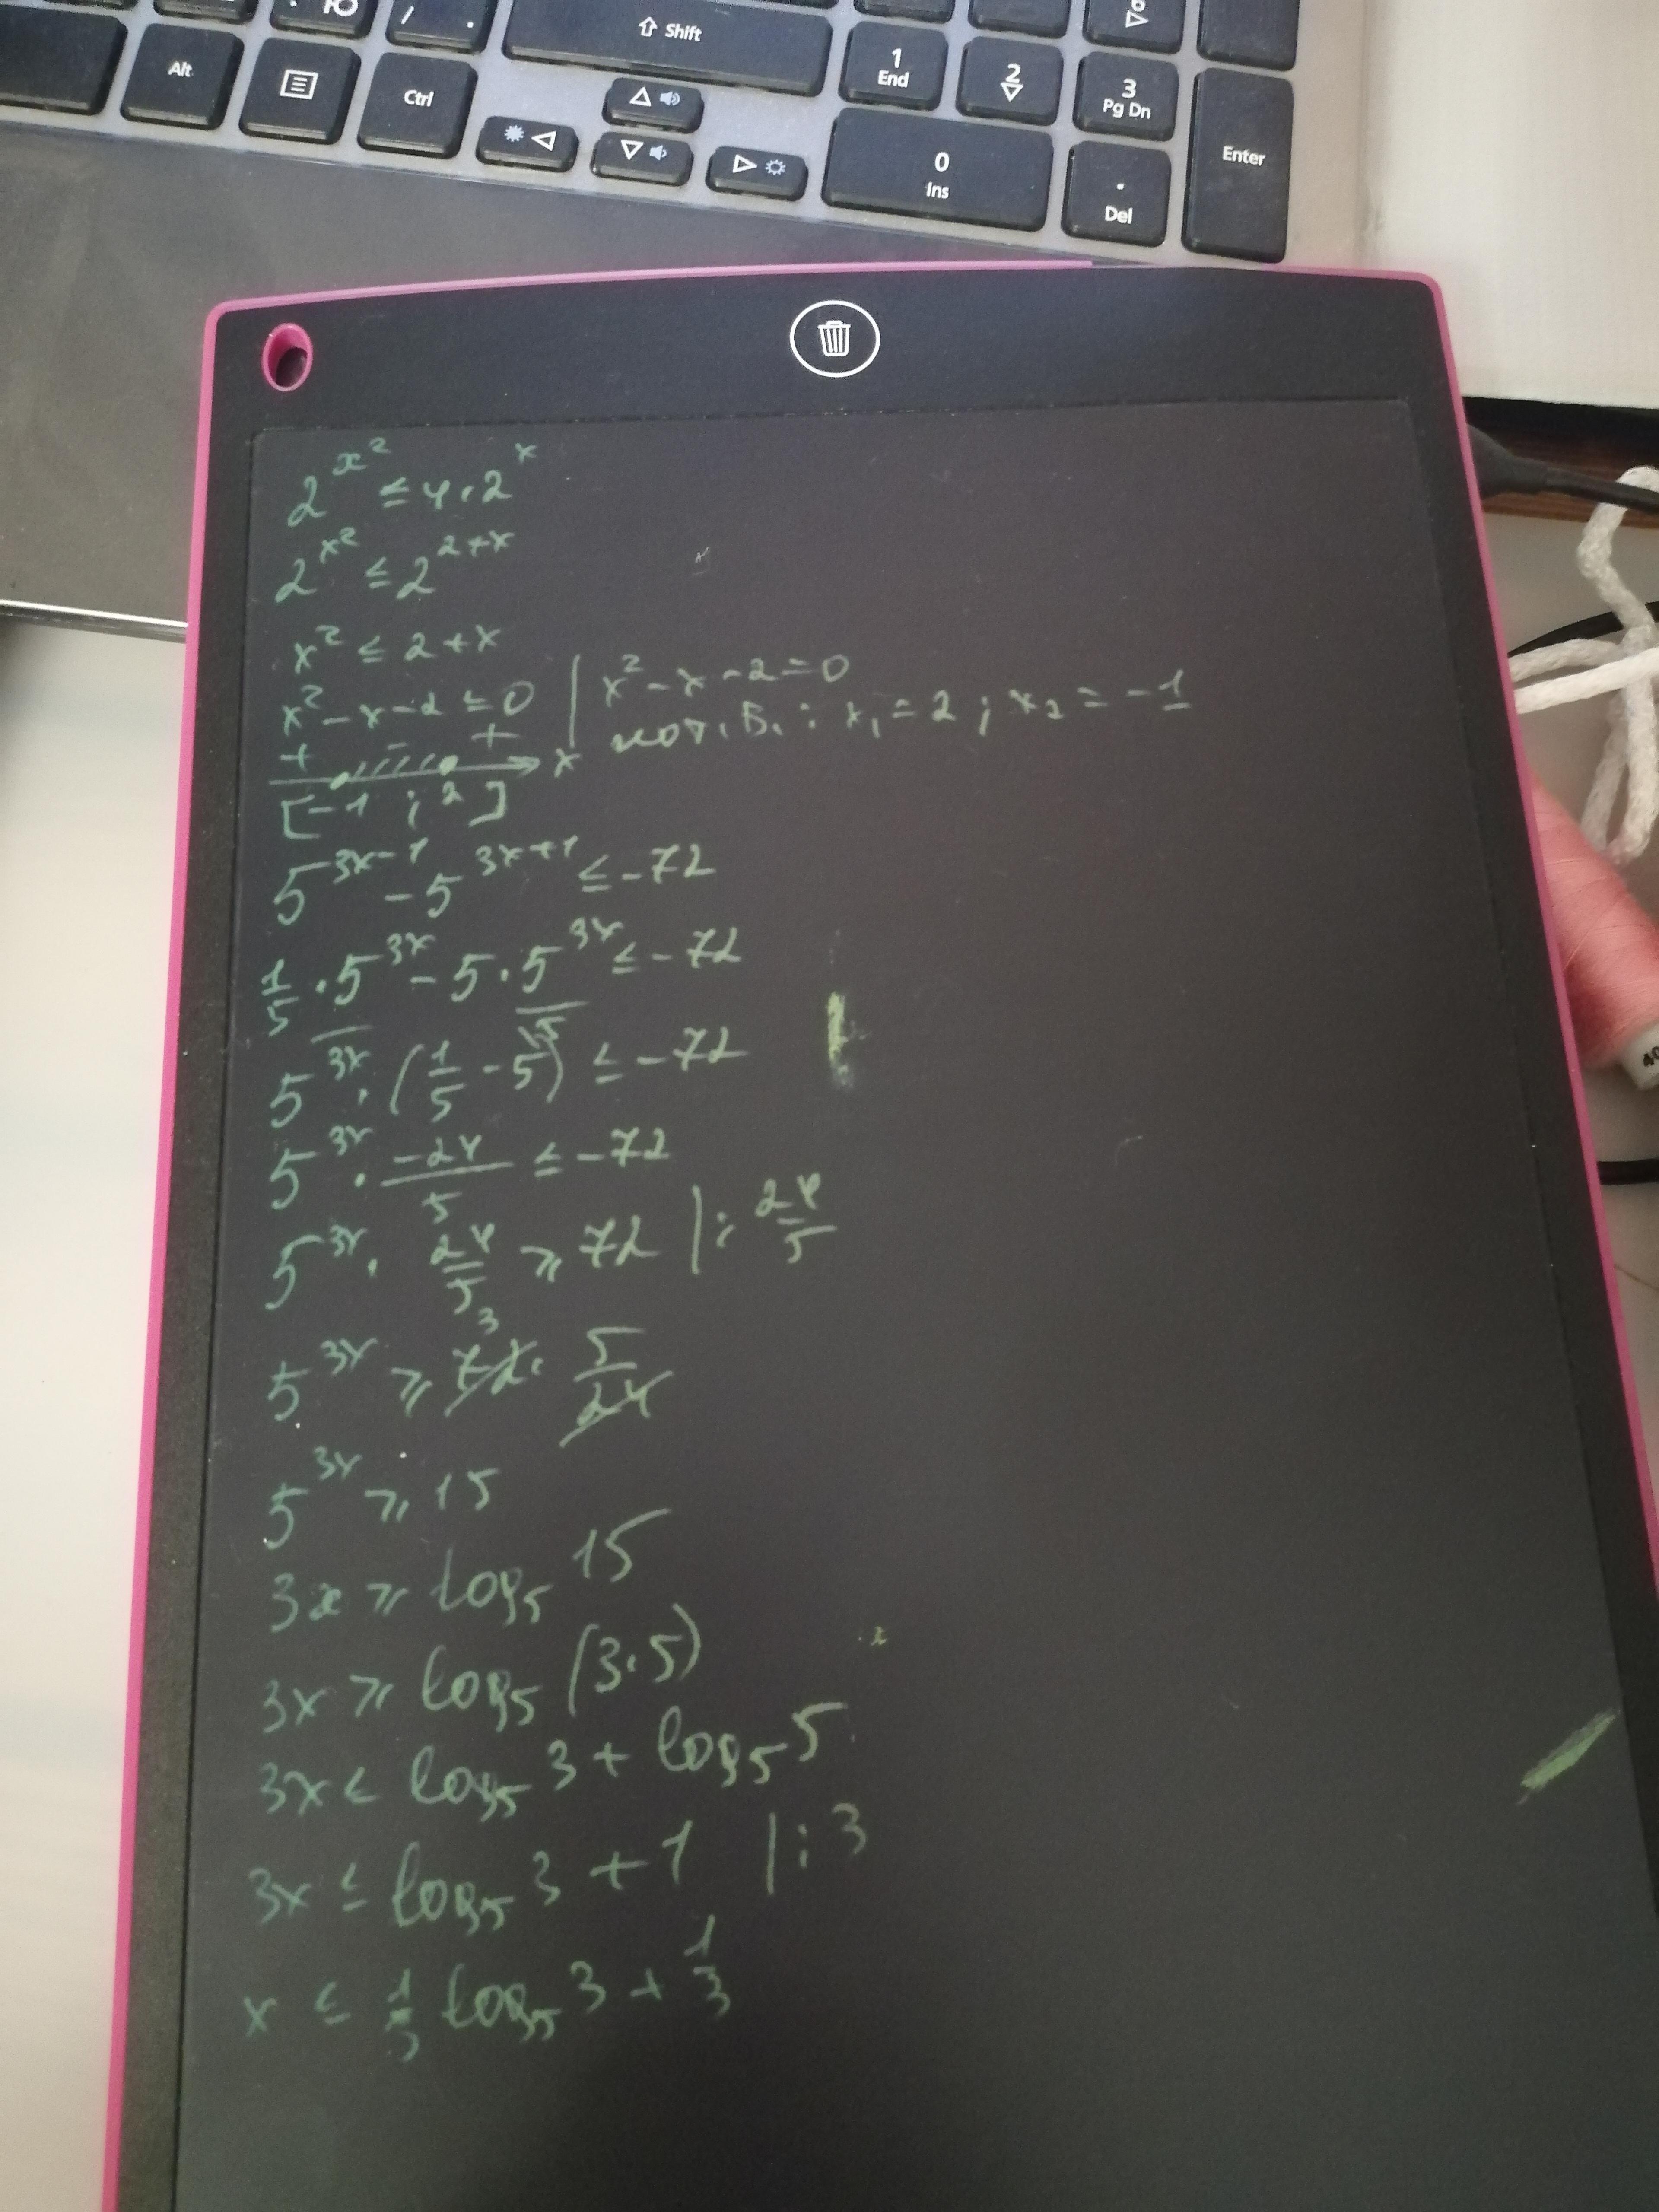 Ю / .
⇧ Shift
1 End
2
3 Pg Dn
6
Alt
Ctrl
0 Ins
. Del
Enter
40
2^{x^2} ≤ 4 · 2^x
2^{x^2} ≤ 2^{2+x}
x^2 ≤ 2+x
x^2 - x - 2 ≤ 0 | x^2 - x - 2 = 0
+ - + x | по т. В.: x_1 = 2 ; x_2 = -1
[-1 ; 2]
5^{3x-1} - 5^{3x+1} ≤ -72
1/5 · 5^{3x} - 5 · 5^{3x} ≤ -72
5^{3x} · (1/5 - 5^{\5}) ≤ -72
5^{3x} · -24/5 ≤ -72
5^{3x} · 24/5 ≥ 72 | : 24/5
5^{3x} ≥ 72^3 · 5/24
5^{3x} ≥ 15
3x ≥ log_5 15
3x ≥ log_5 (3·5)
3x ≤ log_5 3 + log_5 5
3x ≤ log_5 3 + 1 | : 3
x ≤ 1/3 log_5 3 + 1/3